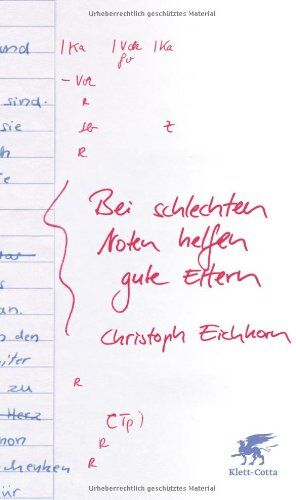 Urheberrechtlich geschütztes Material
und |Ka |Vok |Ka
gr
– Vok
sind. R
sie z
R
Bei schlechten
Noten helfen
gute Eltern
Christoph Eichhorn
an.
den
zu R
Herz (Tp)
R
chenken R
für
Klett-Cotta
Urheberrechtlich geschütztes Material